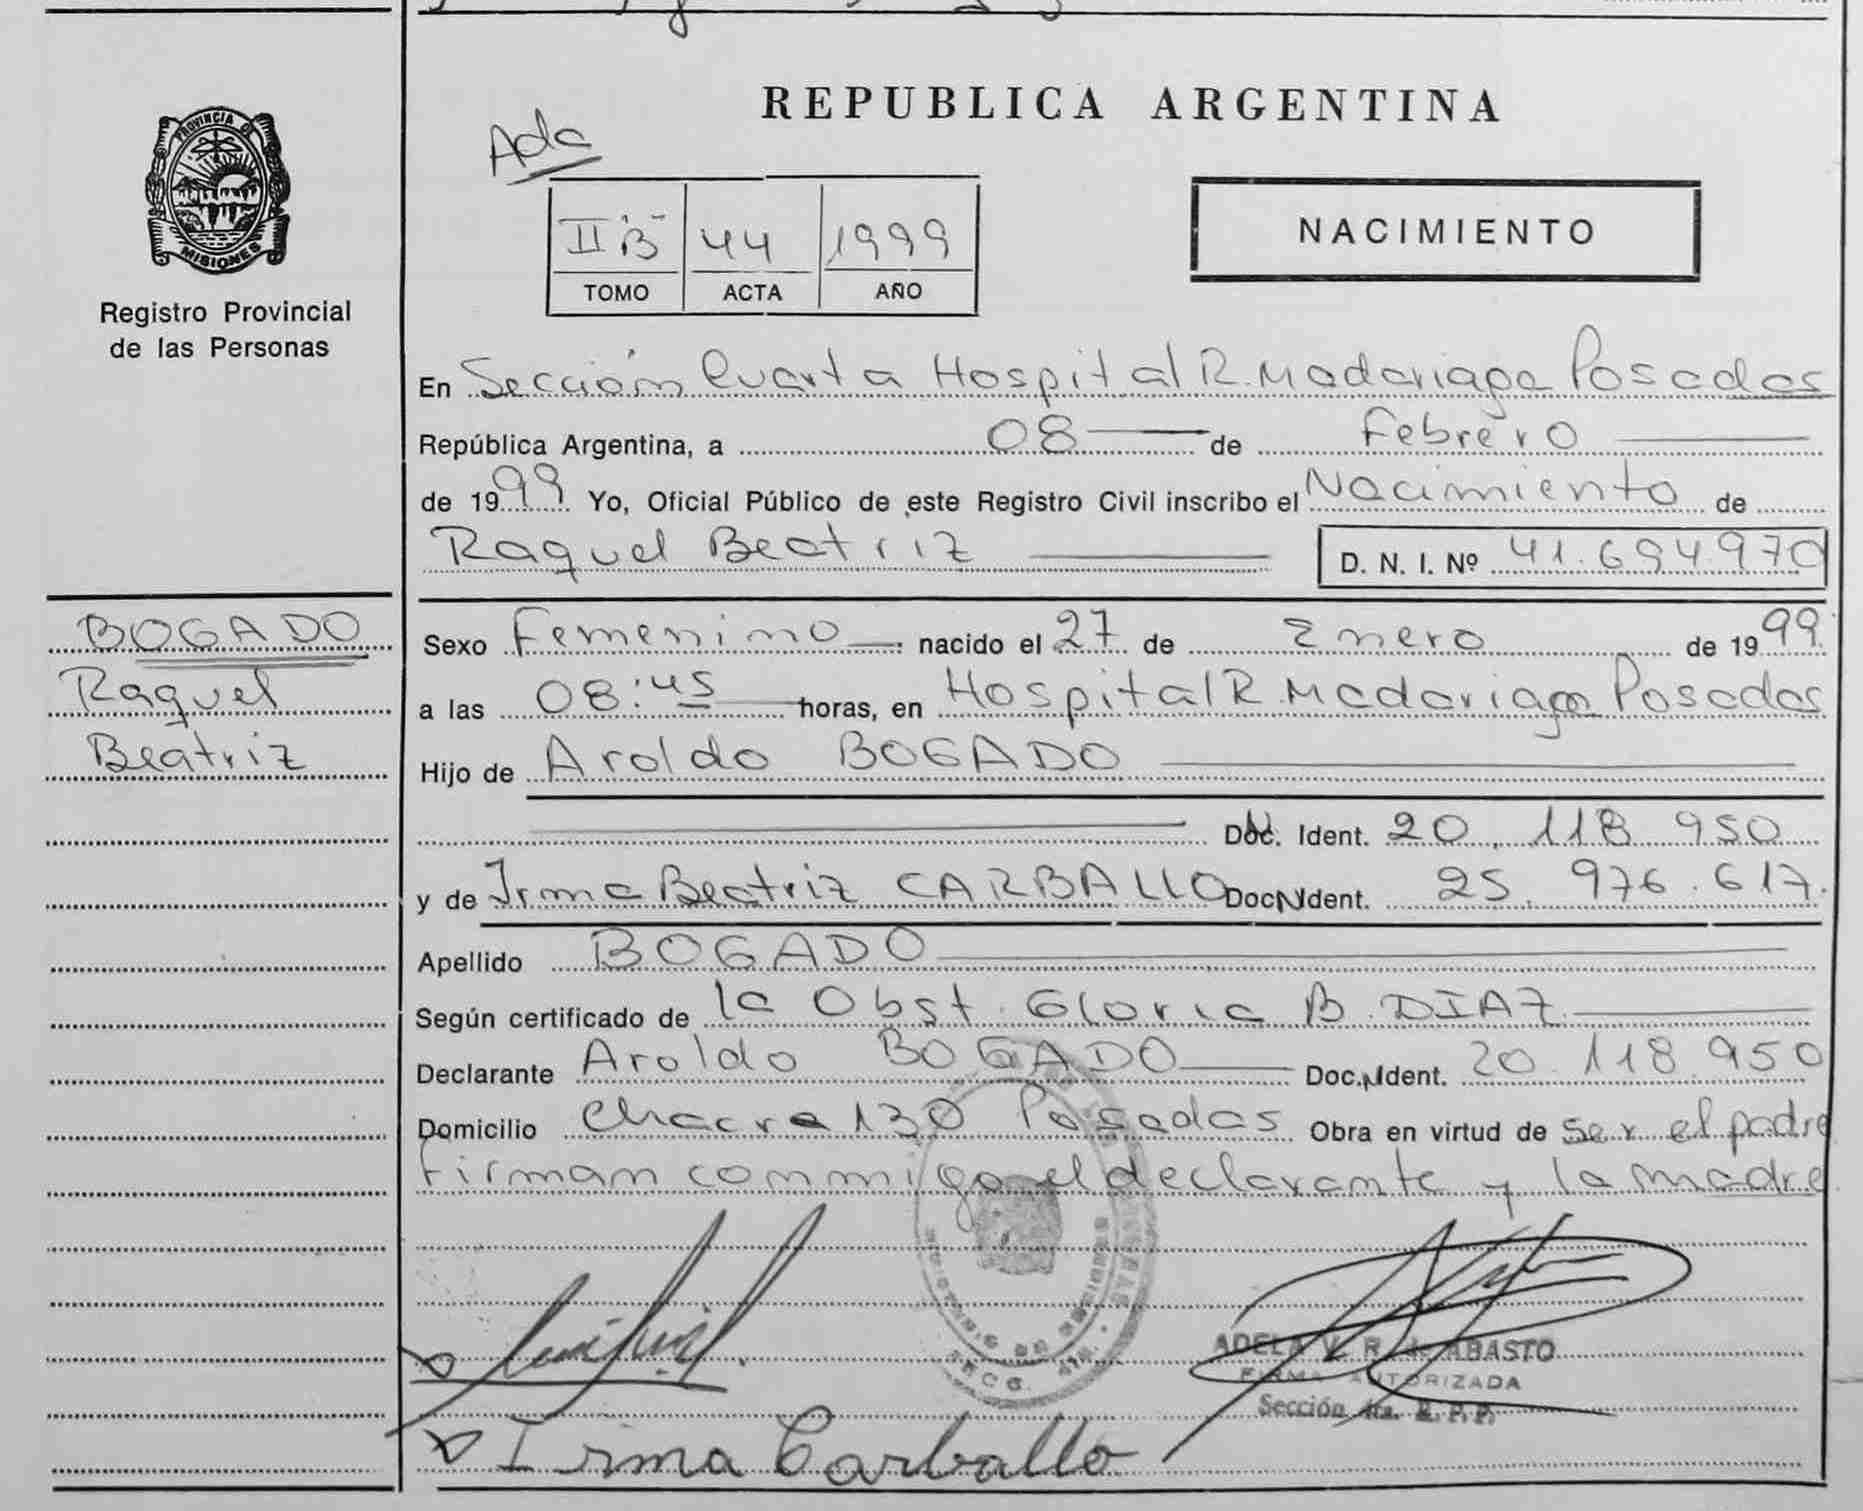 PROVINCIA DE
MISIONES
Registro Provincial
de las Personas
BOGADO
Raquel
Beatriz
REPUBLICA ARGENTINA
Ada
II "B" 44 1999
TOMO ACTA AÑO
NACIMIENTO
En Sección Cuarta Hospital R. Madariaga Posadas
República Argentina, a 08 de Febrero
de 1999 Yo, Oficial Público de este Registro Civil inscribo el Nacimiento de
Raquel Beatriz D. N. I. Nº 41.694.970
Sexo Femenino nacido el 27 de Enero de 1999
a las 08:45 horas, en Hospital R. Madariaga Posadas
Hijo de Aroldo BOGADO
Doc. Ident. 20.118.950
y de Irma Beatriz CARBALLO Doc. Ident. 25.976.617.
Apellido BOGADO
Según certificado de la Obst. Gloria B. DIAZ
Declarante Aroldo BOGADO Doc. Ident. 20.118.950
Domicilio Chacra 130 Posadas Obra en virtud de ser el padre
Firman conmigo el declarante y la madre
ADELA V. R. de ABASTO
FIRMA AUTORIZADA
Sección 4ta. R. P. P.
Irma Carballo